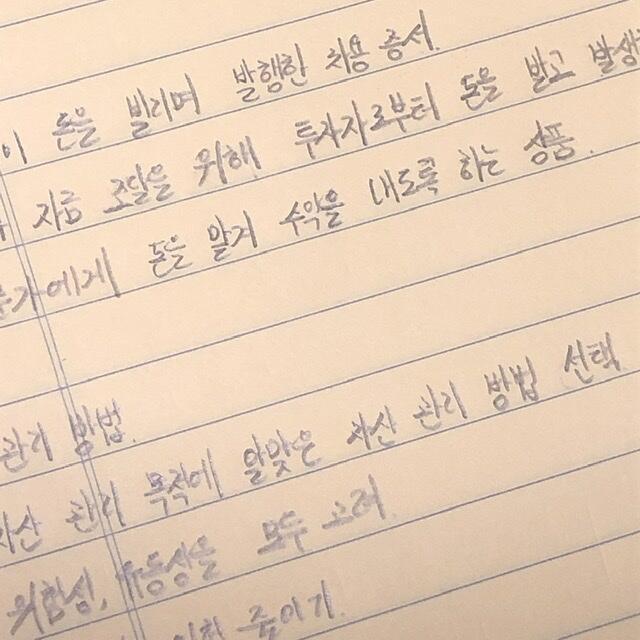 이 돈을 빌리며 발행한 차용 증서.
자금 조달을 위해 투자자로부터 돈을 받고 발생
에게 돈을 맡겨 수익을 내도록 하는 상품.
관리 방법.
자산 관리 목적에 알맞은 자산 관리 방법 선택
위험성, 유동성을 모두 고려.
위험 줄이기.